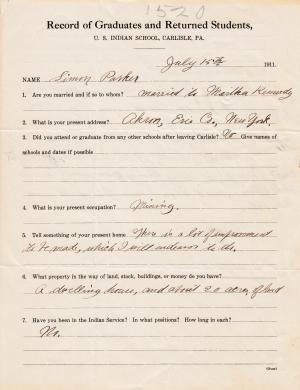 1520
Record of Graduates and Returned Students,
U. S. INDIAN SCHOOL, CARLISLE, PA.
July 15th 1911.
NAME Simon Parker
1. Are you married and if so to whom? married to Martha Kennedy
2. What is your present address? Akron, Erie Co., New York.
3. Did you attend or graduate from any other schools after leaving Carlisle? No Give names of
schools and dates if possible
4. What is your present occupation? Mining.
5. Tell something of your present home There is a lot of improvement
to be made, which I will endeavor to do.
6. What property in the way of land, stock, buildings, or money do you have?
A dwelling house, and about 20 acres of land
7. Have you been in the Indian Service? In what positions? How long in each?
No.
(Over)